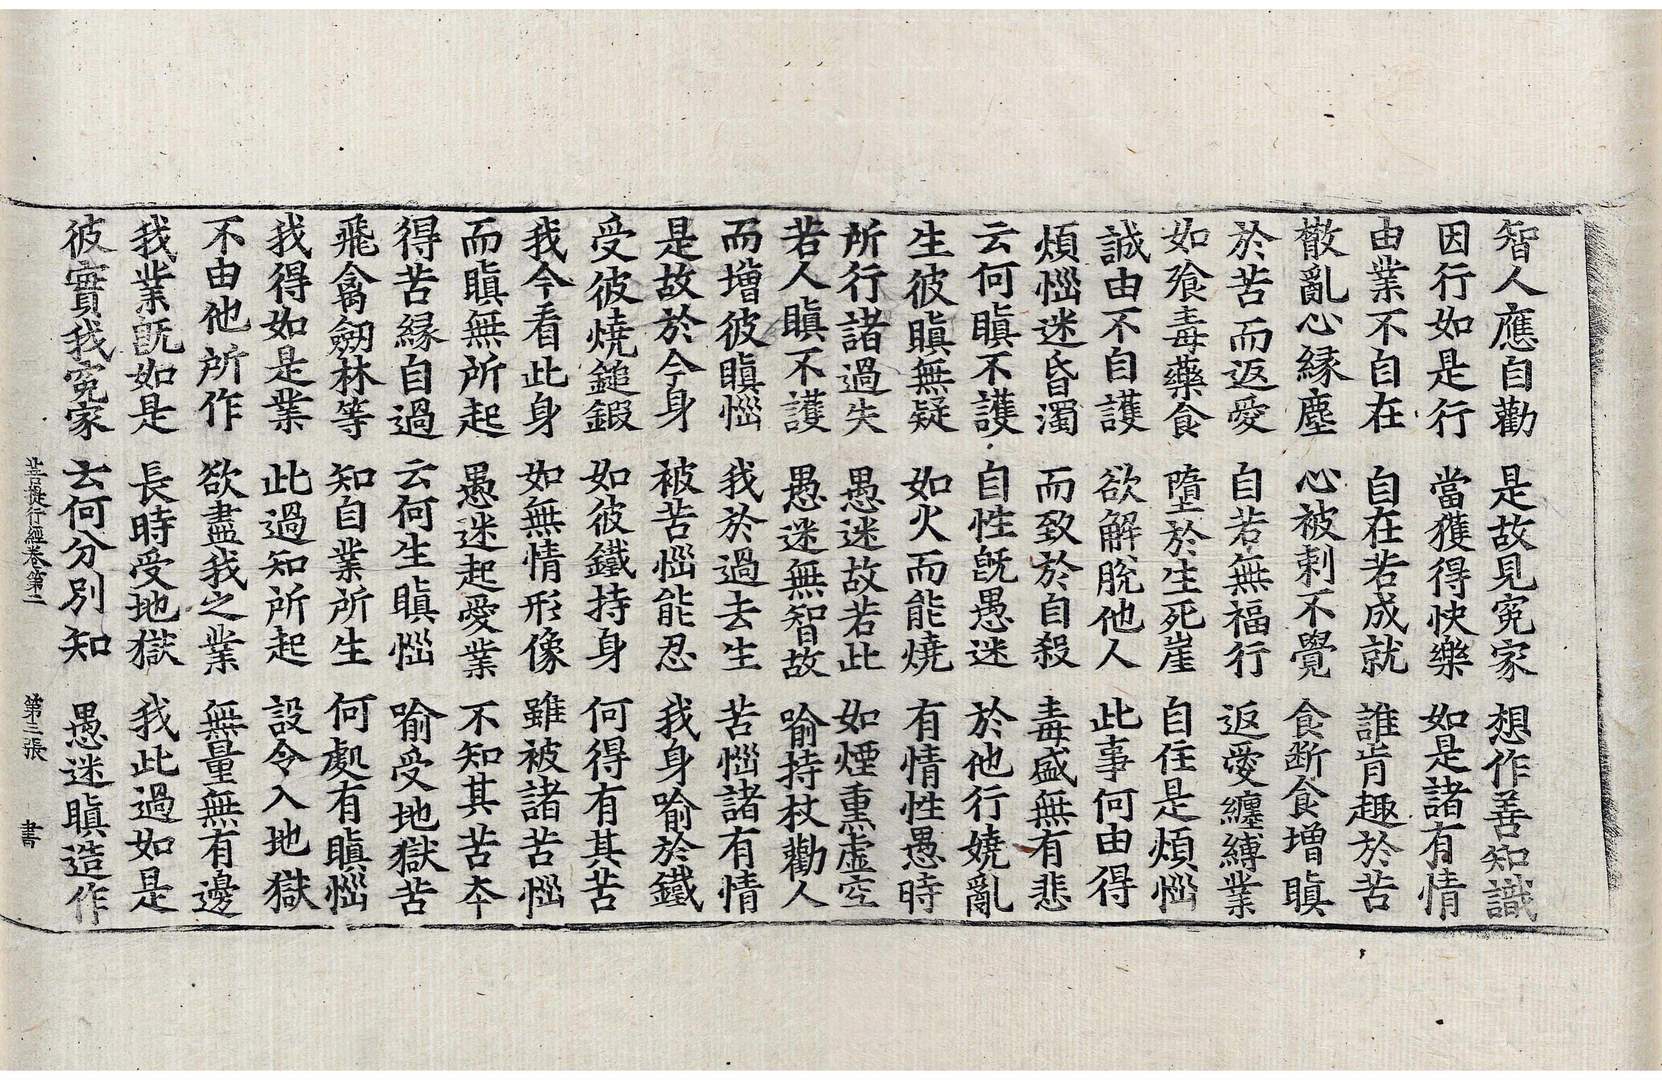 智人應自勸 是故見寃家 想作善知識
因行如是行 當獲得快樂 如是諸有情
由業不自在 自在若成就 誰肯趣於苦
散亂心緣塵 心被刺不覺 食断食增瞋
於苦而返愛 自若無福行 返愛纏縛業
如飡毒藥食 墮於生死崖 自住是煩惱
誠由不自護 欲解脫他人 此事何由得
煩惱迷昏濁 而致於自殺 毒盛無有悲
云何瞋不護 自性旣愚迷 於他行嬈亂
生彼瞋無疑 如火而能燒 有情性愚時
所行諸過失 愚迷故若此 如煙熏虛空
若人瞋不護 愚迷無智故 喻持杖勸人
而增彼瞋惱 我於過去生 苦惱諸有情
是故於今身 被苦惱能忍 我身喻於鐵
受彼燒鎚鍛 如彼鐵持身 何得有其苦
我今看此身 如無情形像 雖被諸苦惱
而瞋無所起 愚迷起愛業 不知其苦夲
得苦緣自過 云何生瞋惱 喻受地獄苦
飛禽劒林等 知自業所生 何處有瞋惱
我得如是業 此過知所起 設令入地獄
不由他所作 欲盡我之業 無量無有邊
我業旣如是 長時受地獄 我此過如是
彼實我寃家 云何分別知 愚迷瞋造作
菩提行經卷第二 第三張 書